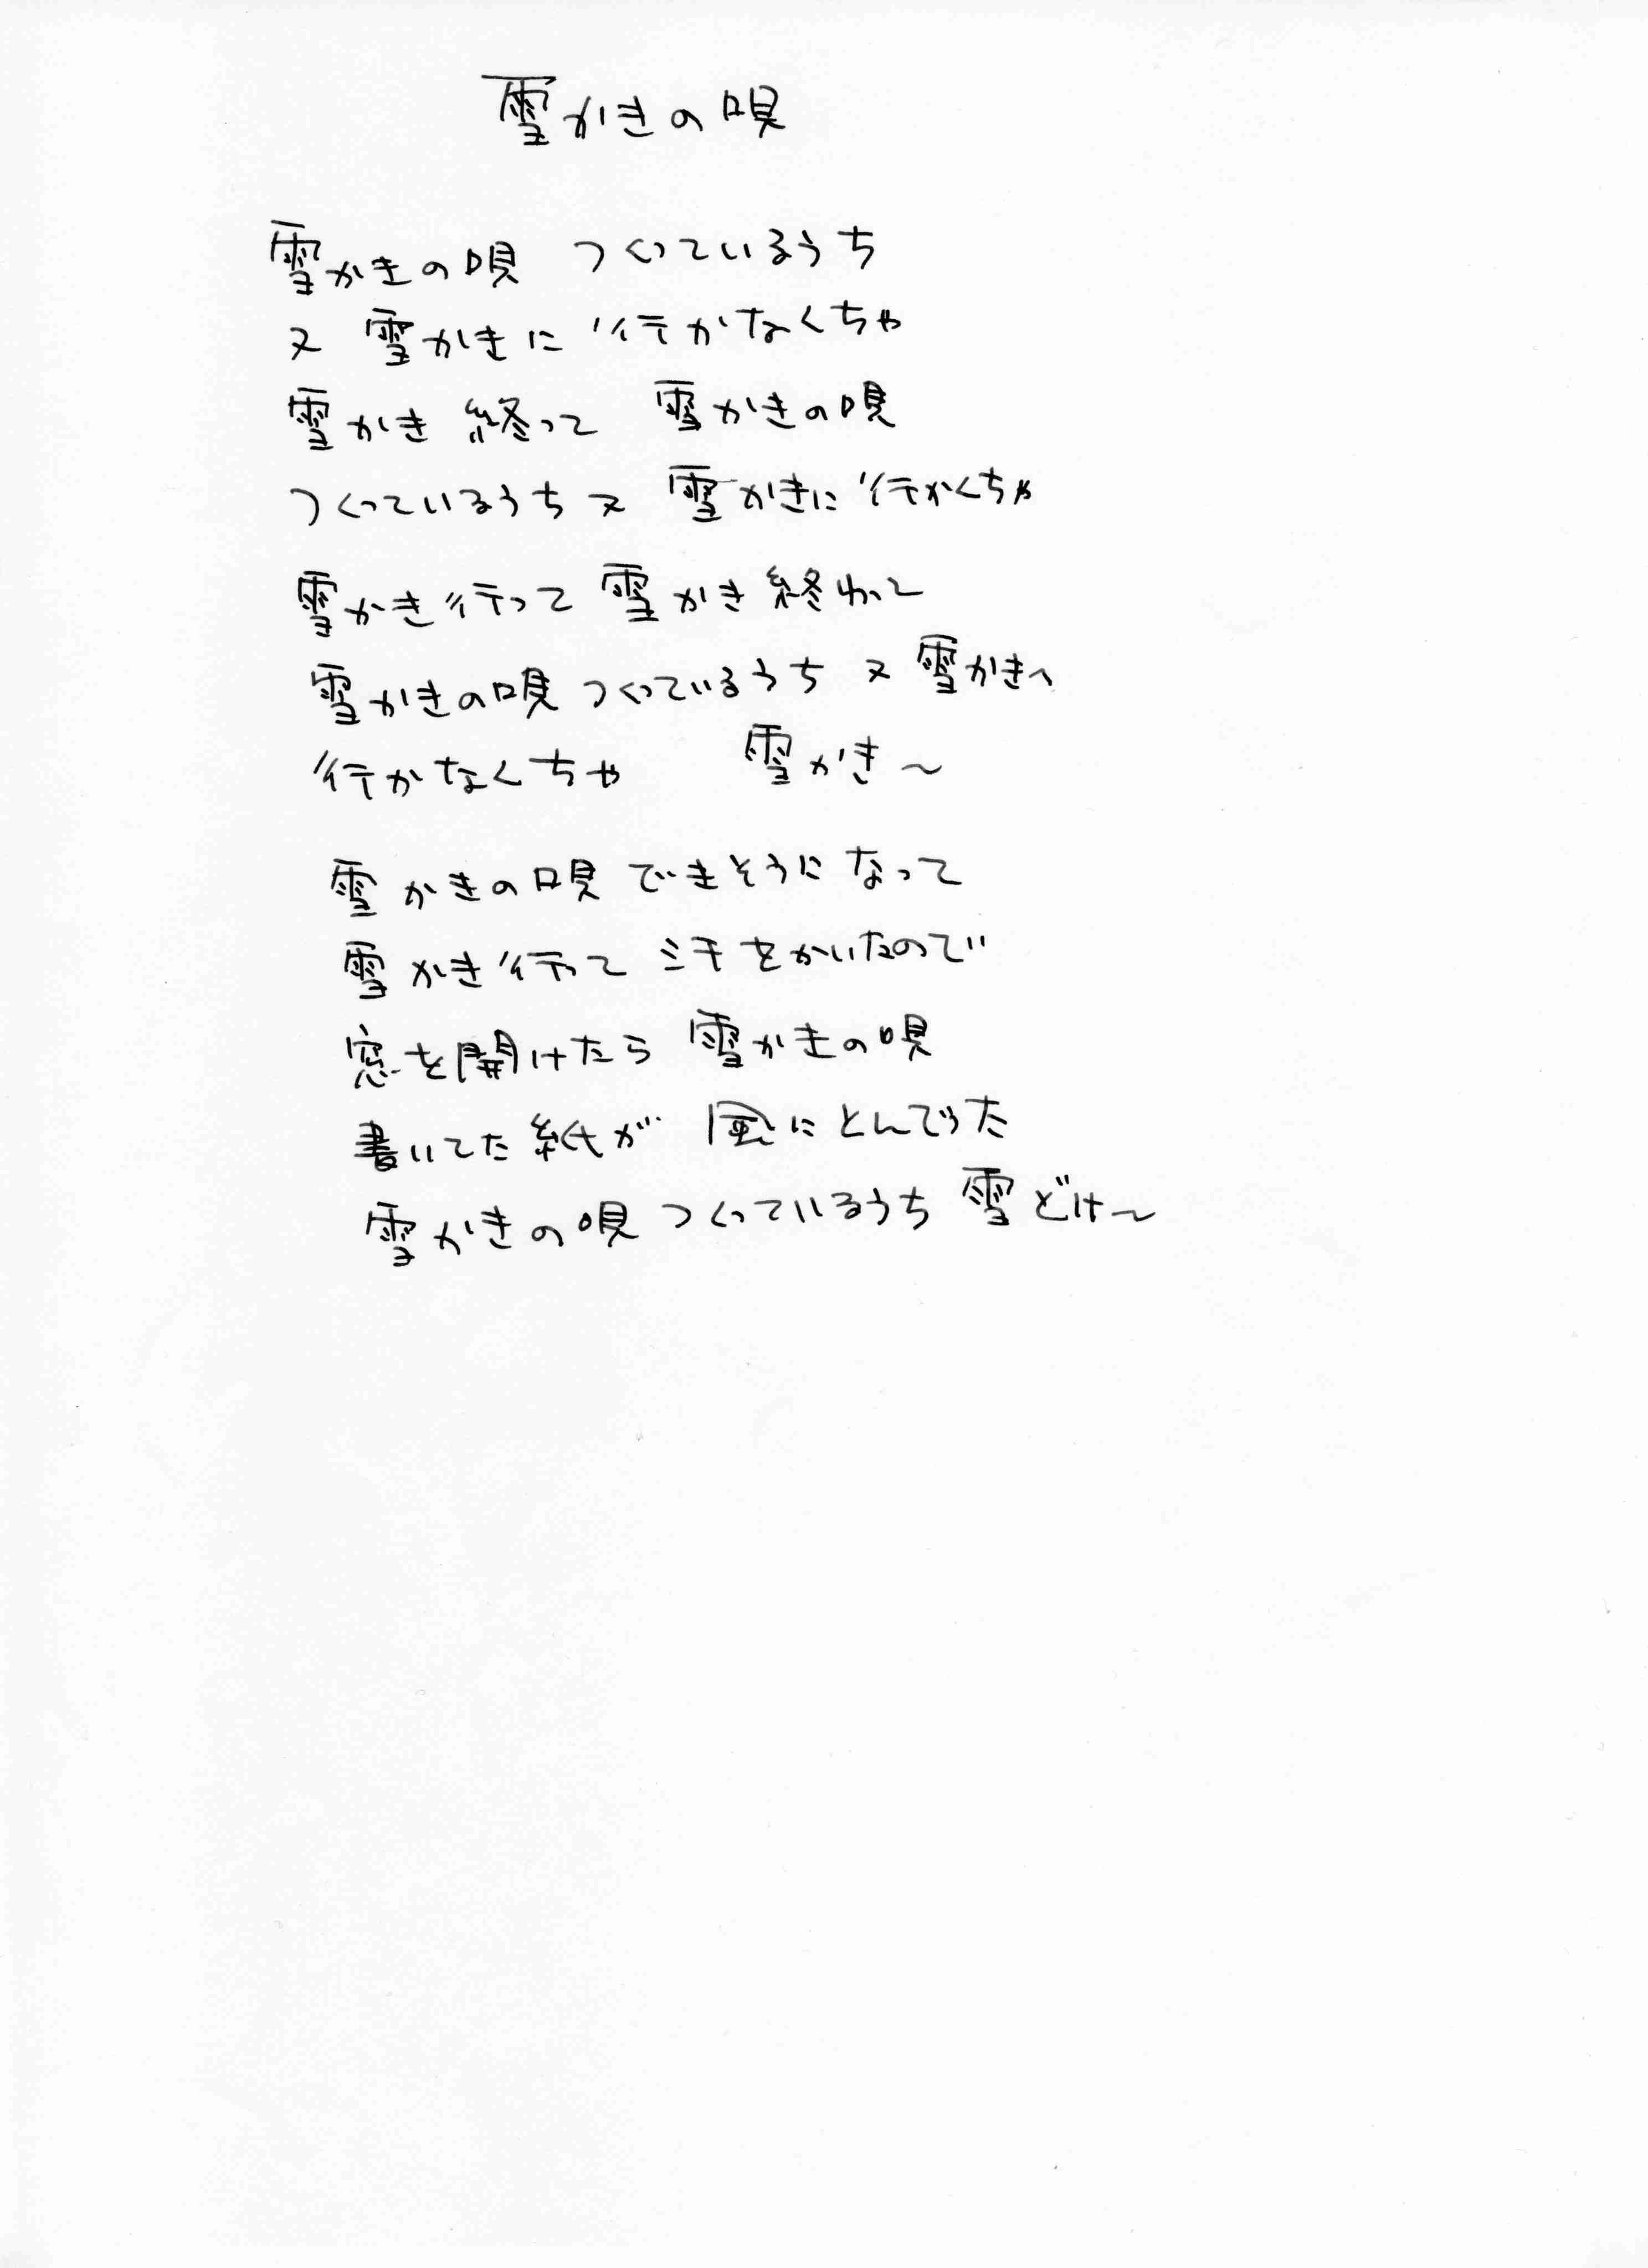 雪かきの唄
雪かきの唄 つくっているうち
又 雪かきに 行かなくちゃ
雪かき 終って 雪かきの唄
つくっているうち又 雪かきに行かくちゃ
雪かき行って 雪かき終わって
雪かきの唄 つくっているうち 又 雪かきへ
行かなくちゃ 雪かき〜
雪かきの唄 できそうに なって
雪かき行って 汗をかいたので
窓を開けたら 雪かきの唄
書いてた紙が 風にとんでった
雪かきの唄 つくっているうち 雪どけ〜